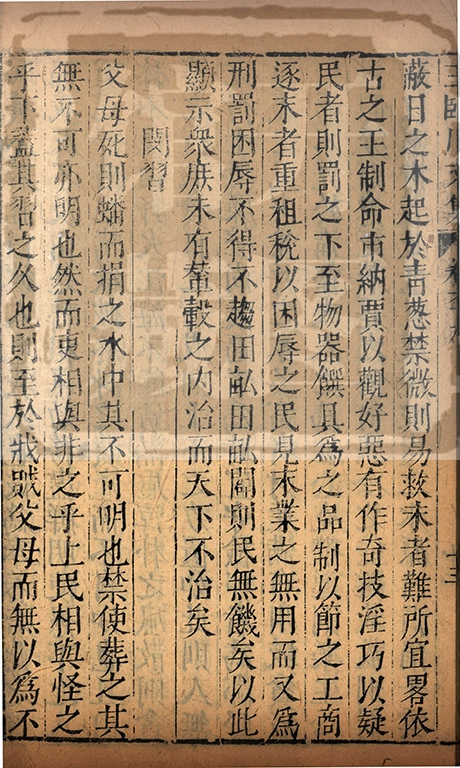 蔽日之木起於青葱禁微則易救末者難所宜畧依
古之王制命市納賈以觀好惡有作奇技淫巧以疑
民者則罰之下至物器饌具為之品制以節之工商
逐末者重租稅以困辱之民見末業之無用而又為
刑罰困辱不得不趨田畝田畝闢則民無饑矣以此
顯示衆庶未有輦轂之内治而天下不治矣
閔習
父母死則燔而捐之水中其不可明也禁使葬之其
無不可亦明也然而吏相與非之乎上民相與怪之
乎下蓋其習之久也則至於戕賊父母而無以為不